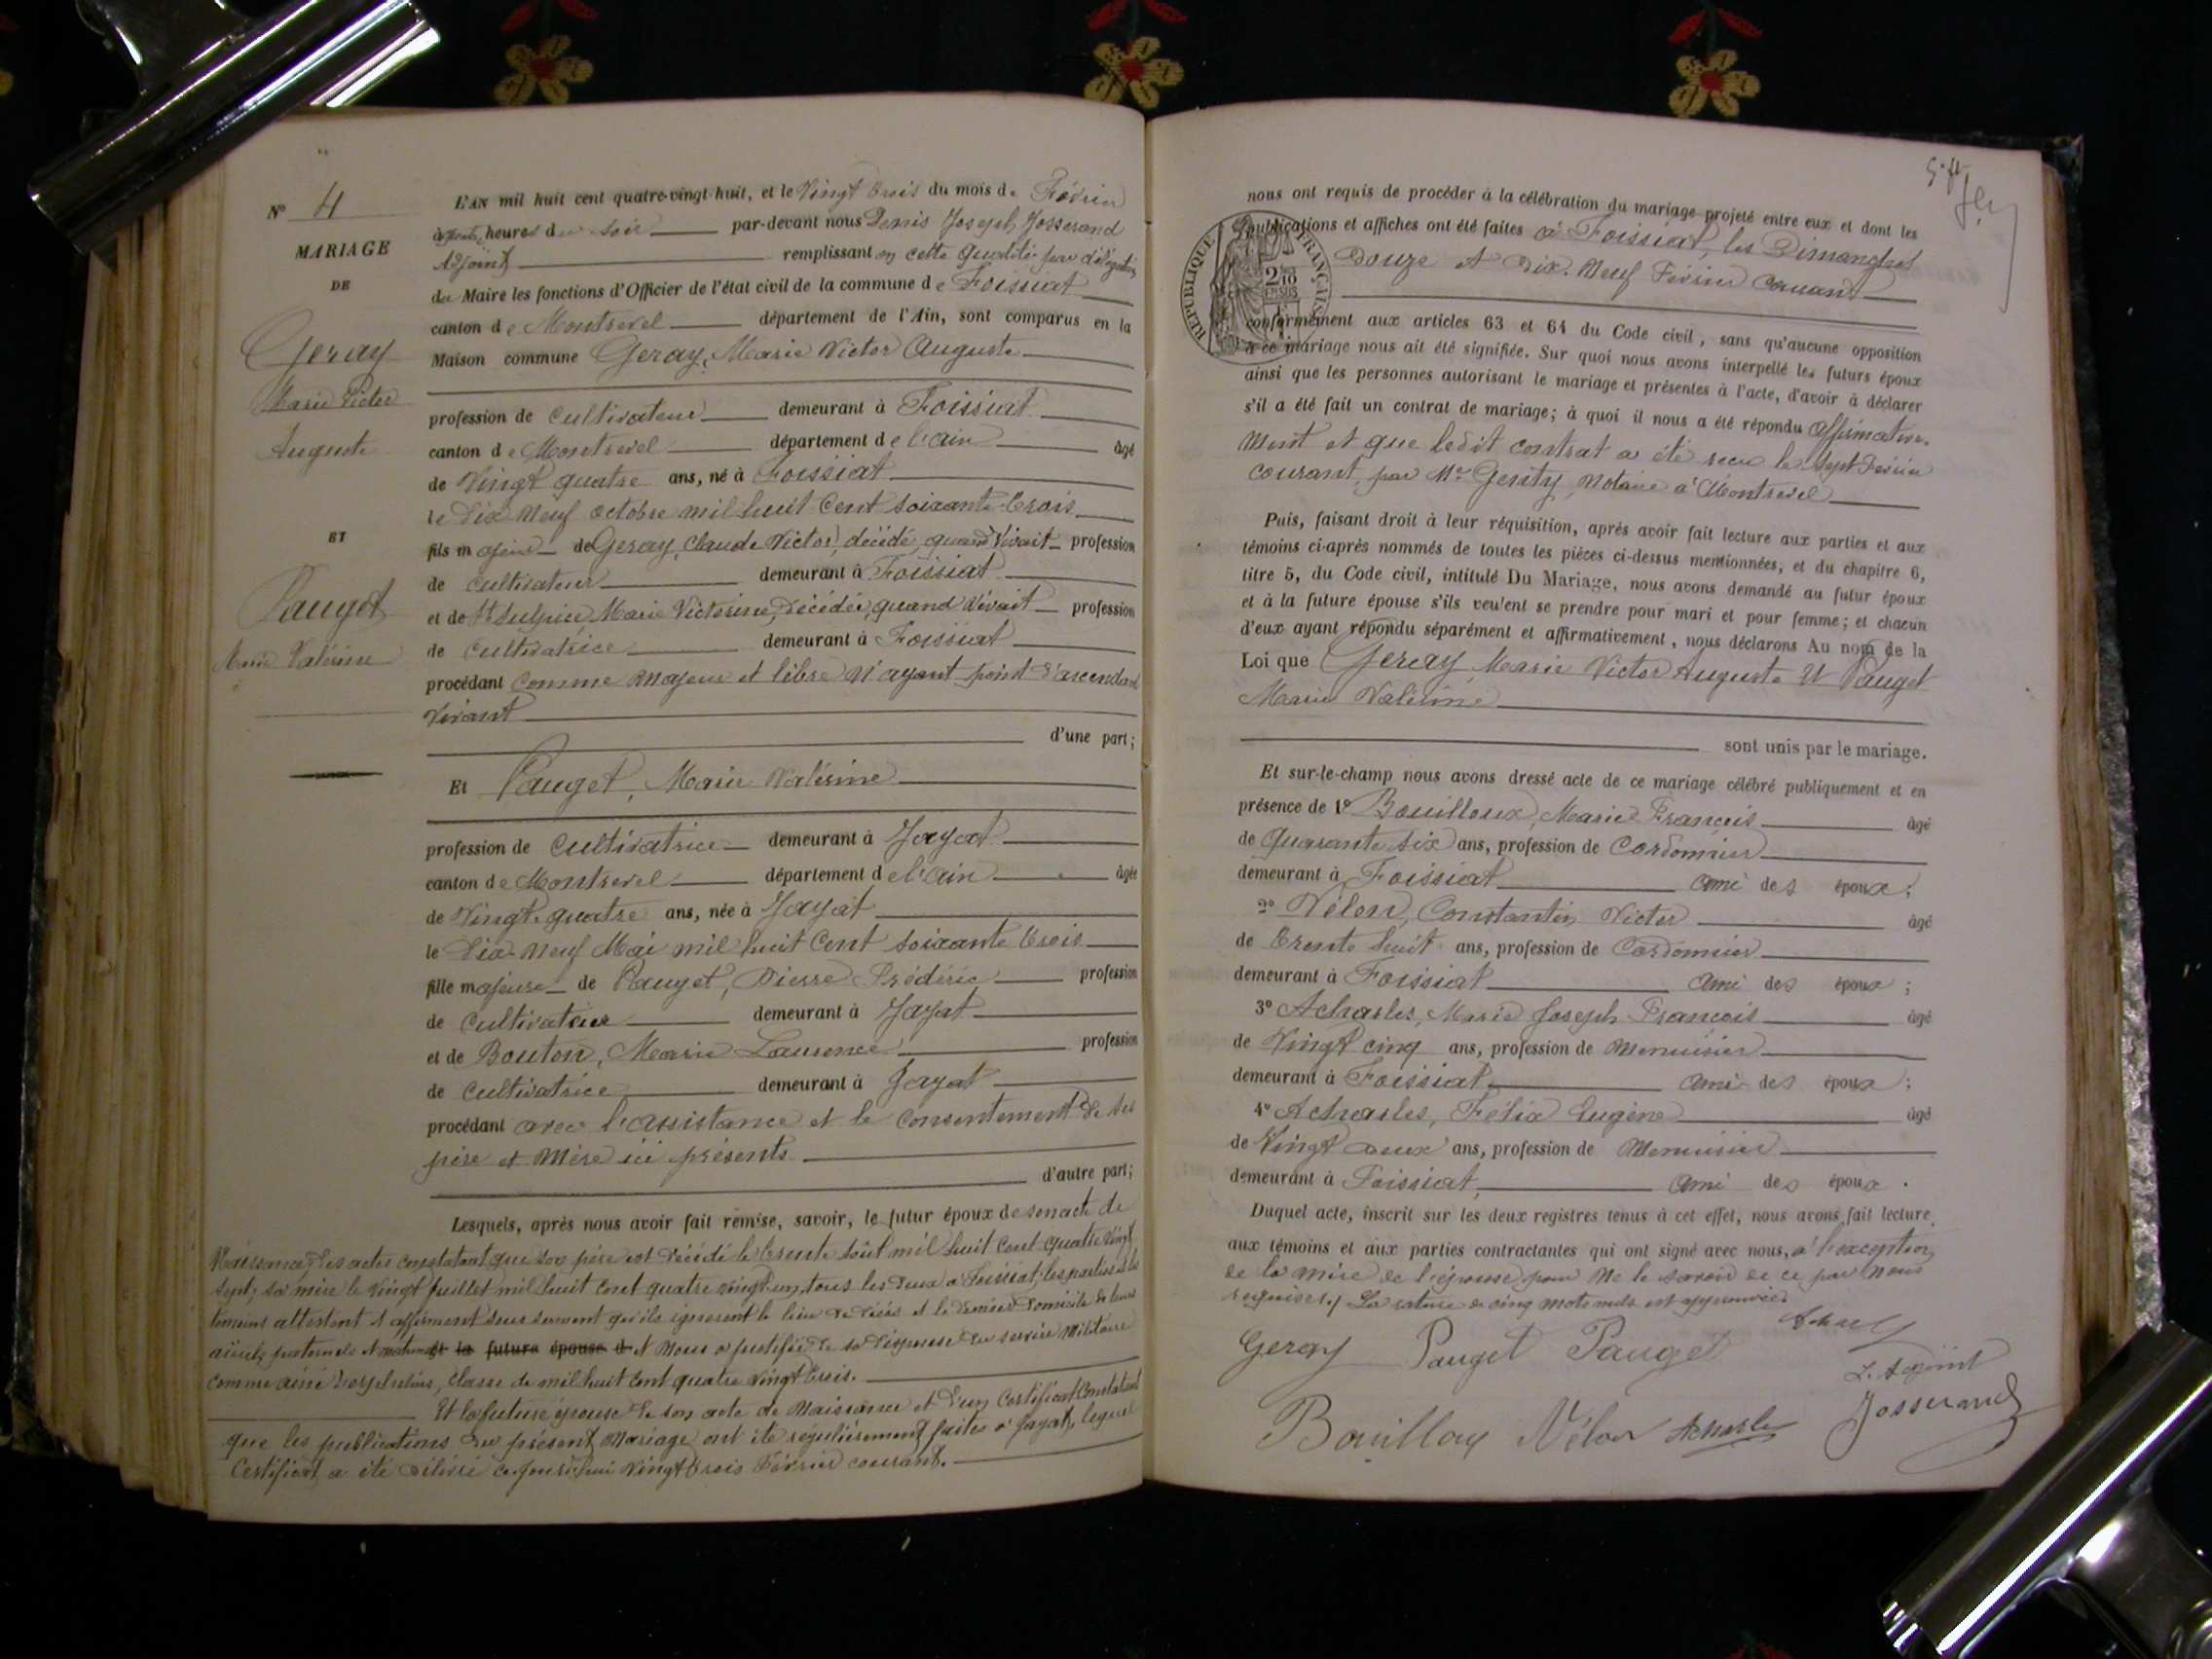 N° 4
MARIAGE
DE
Geray
Marie Victor
Auguste
ET
Pauget
Marie Valérine
L'AN mil huit cent quatre-vingt-huit, et le Vingt trois du mois de Février
à heures du soir par-devant nous Denis Joseph Josserand
Adjoint remplissant en cette qualité par délégation
du Maire les fonctions d'Officier de l'état civil de la commune de Foissiat
canton de Montrevel département de l'Ain, sont comparus en la
Maison commune Geray, Marie Victor Auguste
profession de cultivateur demeurant à Foissiat
canton de Montrevel département de l'ain âgé
de Vingt quatre ans, né à Foissiat
le Dix Neuf octobre mil huit Cent soixante-trois
fils majeur de Geray, Claude Victor, décédé, quand vivait profession
de cultivateur demeurant à Foissiat
et de St Sulpice, Marie Victorine, décédée, quand vivait profession
de cultivatrice demeurant à Foissiat
procédant comme majeur et libre N'ayant point d'ascendant
vivant
d'une part;
Et Pauget, Marie Valérine
profession de Cultivatrice demeurant à Jayat
canton de Montrevel département de l'ain âgée
de Vingt-quatre ans, née à Jayat
le Dix-Neuf Mai mil huit Cent soixante trois
fille majeure de Pauget, Pierre Frédéric profession
de cultivateur demeurant à Jayat
et de Bouton, Marie Laurence profession
de cultivatrice demeurant à Jayat
procédant avec l'assistance et le Consentement de ses
père et Mère ici présents
d'autre part;
Lesquels, après nous avoir fait remise, savoir, le futur époux de son acte de
Naissance, des actes constatant que son père est décédé le trente août mil huit Cent quatre Vingt
sept, sa mère le Vingt juillet mil huit Cent quatre vingt un, tous les deux à Foissiat, les parties et les
témoins attestent et affirment sous serment qu'ils ignorent le lieu du décès et le dernier domicile de leurs
aïeuls paternels et maternels et la future épouse d et Nous a justifié de sa dispense du service Militaire
comme aîné d'orphelins, classe de mil huit Cent quatre Vingt trois.
Et la future épouse de son acte de Naissance et d'un Certificat Constatant
que les publications du présent Mariage ont été régulièrement faites à Jayat, lequel
Certificat a été délivré ce jourd'hui Vingt trois Février courant.
nous ont requis de procéder à la célébration du mariage projeté entre eux et dont les
publications et affiches ont été faites à Foissiat, les Dimanches
Douze et Dix-Neuf Février Courant
REPUBLIQUE FRANÇAISE
conformément aux articles 63 et 64 du Code civil, sans qu'aucune opposition
à ce mariage nous ait été signifiée. Sur quoi nous avons interpellé les futurs époux
ainsi que les personnes autorisant le mariage et présentes à l'acte, d'avoir à déclarer
s'il a été fait un contrat de mariage; à quoi il nous a été répondu affirmative-
ment et que ledit contrat a été reçu le sept Février
courant, par Me Notaire à Montrevel
Puis, faisant droit à leur réquisition, après avoir fait lecture aux parties et aux
témoins ci-après nommés de toutes les pièces ci-dessus mentionnées, et du chapitre 6,
titre 5, du Code civil, intitulé Du Mariage, nous avons demandé au futur époux
et à la future épouse s'ils veulent se prendre pour mari et pour femme; et chacun
d'eux ayant répondu séparément et affirmativement, nous déclarons Au nom de la
Loi que Geray, Marie Victor Auguste Et Pauget
Marie Valérine
sont unis par le mariage.
Et sur-le-champ nous avons dressé acte de ce mariage célébré publiquement et en
présence de 1° Bouilloux, Marie François âgé
de Quarante six ans, profession de Cordonnier
demeurant à Foissiat ami des époux;
2° Vélon, Constantin Victor âgé
de trente huit ans, profession de Cordonnier
demeurant à Foissiat Ami des époux;
3° Acharles, Marie Joseph François âgé
de Vingt cinq ans, profession de Menuisier
demeurant à Foissiat ami des époux;
4° Acharles, Félix Eugène âgé
de Vingt Deux ans, profession de Menuisier
demeurant à Foissiat, Ami des époux.
Duquel acte, inscrit sur les deux registres tenus à cet effet, nous avons fait lecture
aux témoins et aux parties contractantes qui ont signé avec nous, à l'exception
de la mère de l'épouse pour Ne le savoir de ce par Nous
requises. / La rature de cinq mots nuls est approuvée.
Geray Pauget Pauget
L'Adjoint
Bouilloux Vélon Acharles Josserand